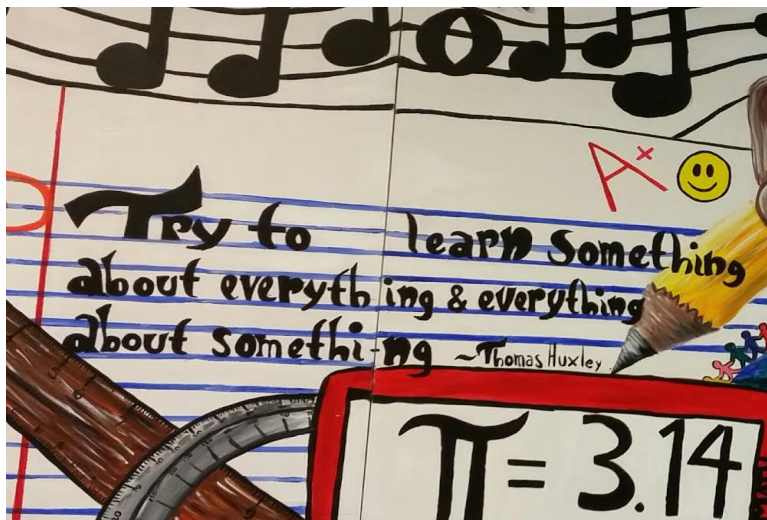 A+
Try to learn something
about everything & everything
about something ~Thomas Huxley
π = 3.14